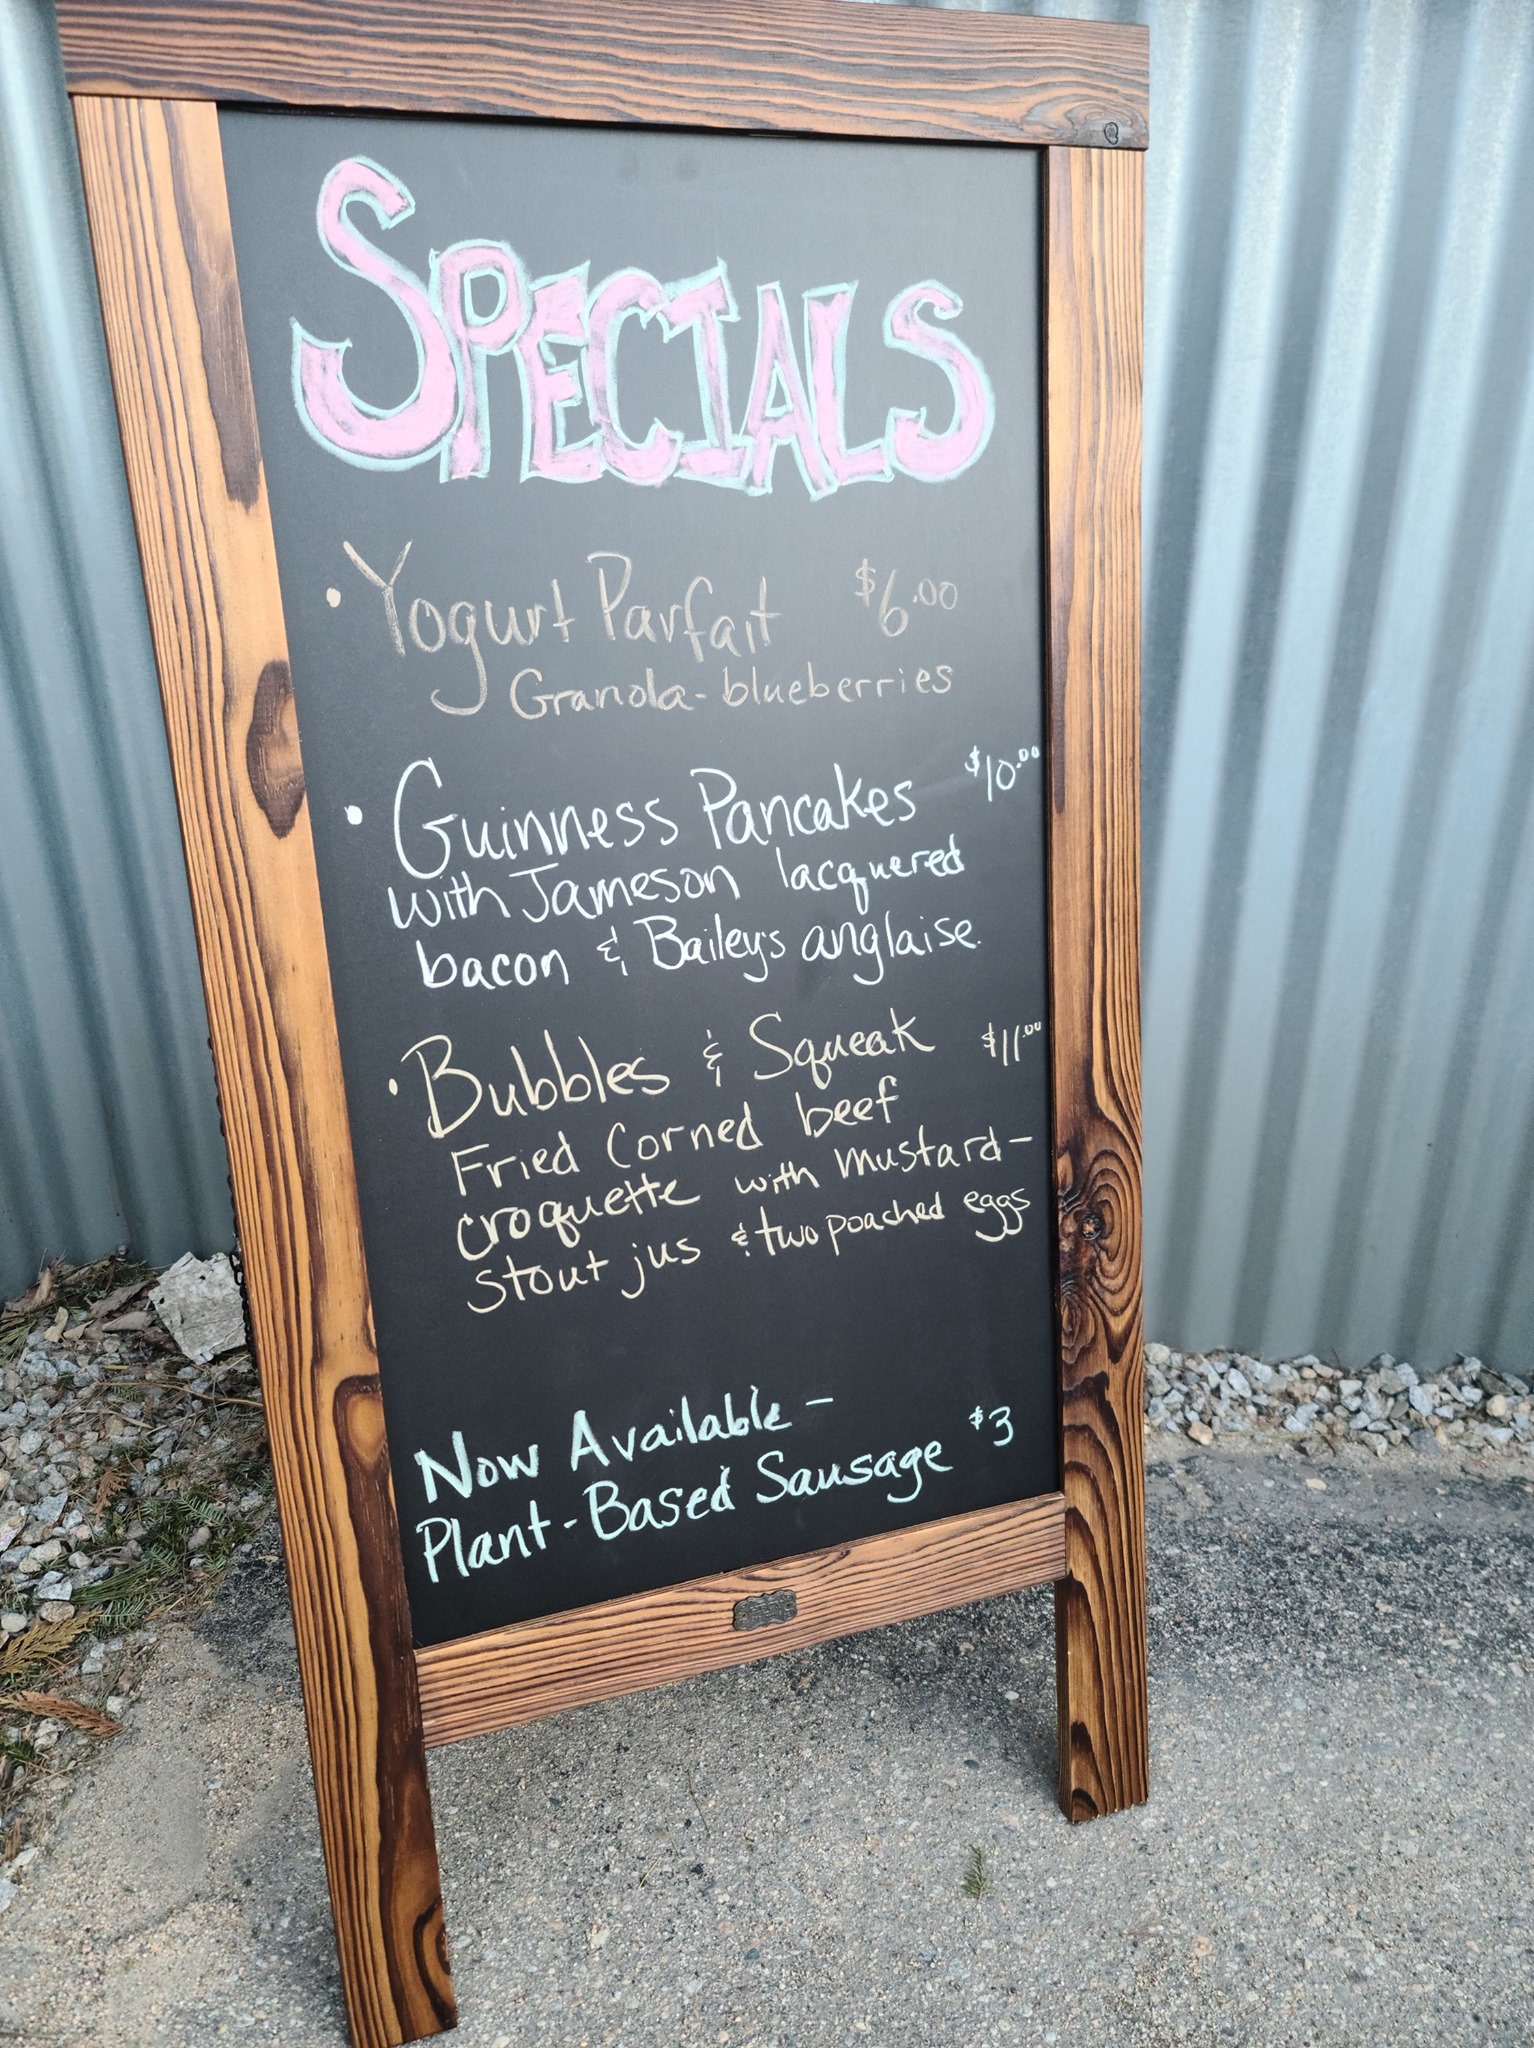 SPECIALS
• Yogurt Parfait $6.00
Granola-blueberries
• Guinness Pancakes $10.00
with Jameson lacquered
bacon & Bailey's anglaise.
• Bubbles & Squeak $11.00
Fried Corned beef
croquette with mustard-
stout jus & two poached eggs
Now Available -
Plant-Based Sausage $3